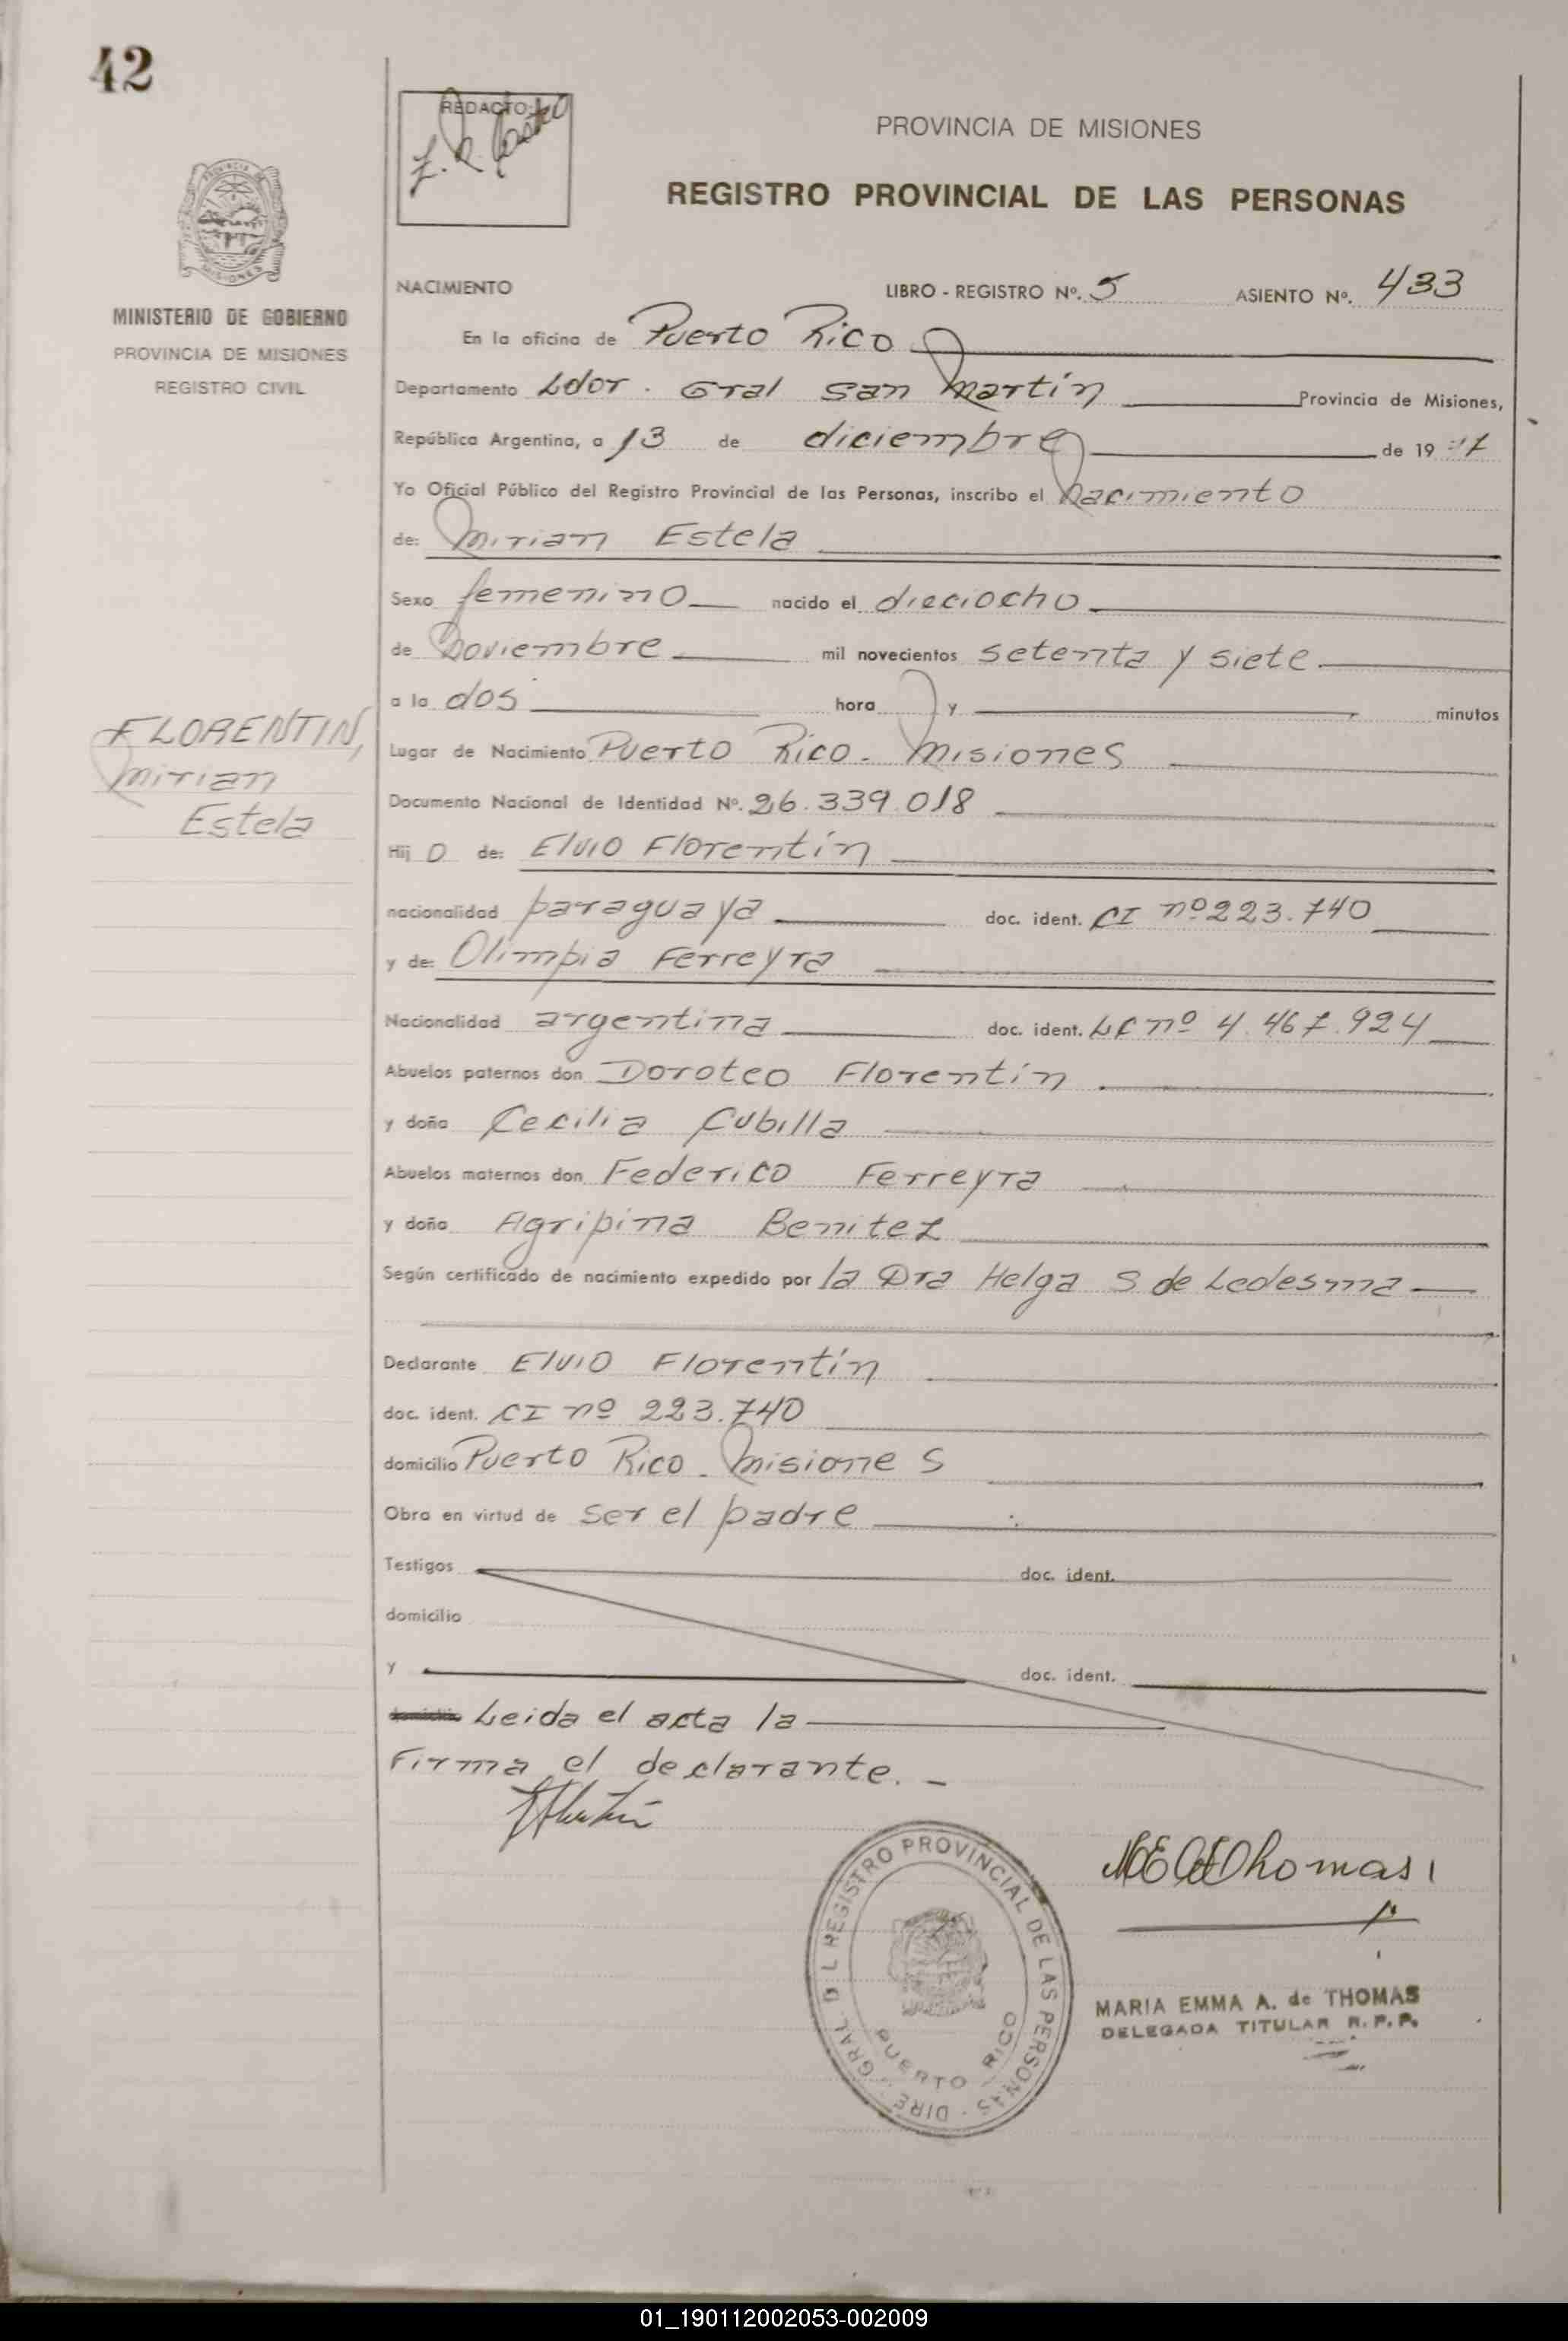 42
REDACTO:
PROVINCIA DE MISIONES
REGISTRO PROVINCIAL DE LAS PERSONAS
PROVINCIA DE
MISIONES
MINISTERIO DE GOBIERNO
PROVINCIA DE MISIONES
REGISTRO CIVIL
NACIMIENTO LIBRO - REGISTRO Nº. 5 ASIENTO Nº. 433
En la oficina de Puerto Rico
Departamento Ldor. Gral San Martín Provincia de Misiones,
República Argentina, a 13 de diciembre de 19
Yo Oficial Público del Registro Provincial de las Personas, inscribo el Nacimiento
de: Mirian Estela
Sexo femenino nacido el dieciocho
de Noviembre mil novecientos setenta y siete
a la dos hora y minutos
Lugar de Nacimiento Puerto Rico - Misiones
FLORENTIN,
Mirian
Estela
Documento Nacional de Identidad Nº. 26.339.018
Hij O de: Elvio Florentín
nacionalidad paraguaya doc. ident. CI nº 223.740
y de: Olimpia Ferreyra
Nacionalidad argentina doc. ident. LC nº 4.467.924
Abuelos paternos don Doroteo Florentín
y doña Cecilia Cubilla
Abuelos maternos don Federico Ferreyra
y doña Agripina Benitez
Según certificado de nacimiento expedido por la Dra Helga S de Ledesma
Declarante Elvio Florentín
doc. ident. CI nº 223.740
domicilio Puerto Rico - Misiones
Obra en virtud de ser el padre
Testigos doc. ident.
domicilio
y doc. ident.
Leida el acta la
Firma el declarante. -
REGISTRO PROVINCIAL DE LAS PERSONAS - DIRE. GRAL. D L
PUERTO RICO
MARIA EMMA A. de THOMAS
DELEGADA TITULAR R.P.P.
01_190112002053-002009